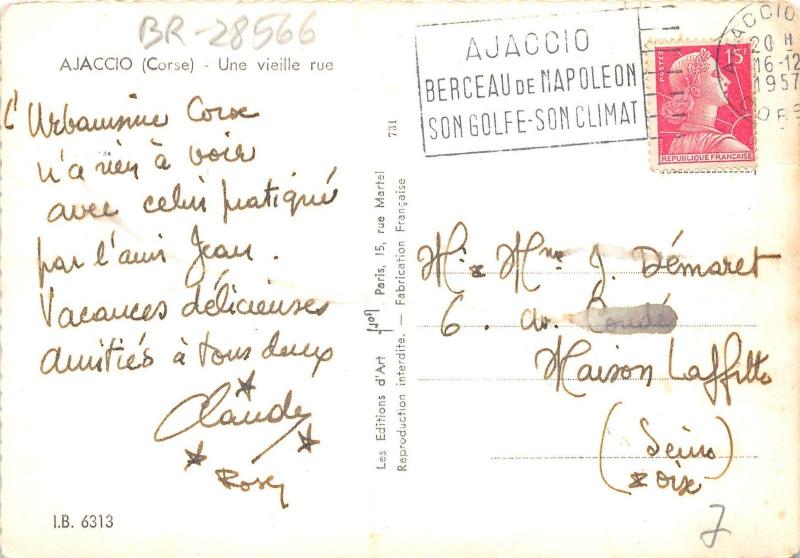 BR-28566
AJACCIO (Corse) - Une vieille rue
L'Urbanisme Corse
n'a rien à voir
avec celui pratiqué
par l'ami Jean.
Vacances délicieuses
amitiés à tous deux
Claude
Rosy
I.B. 6313
Les Editions d'Art Paris, 15, rue Martel 731
Reproduction interdite. — Fabrication Française
AJACCIO
BERCEAU DE NAPOLEON
SON GOLFE-SON CLIMAT
AJACCIO
20 H
16-12
1957
CORSE
POSTES
15F
REPUBLIQUE FRANÇAISE
Mr & Mme J. Démaret
6. av. Condé
Maison Laffitte
(Seine
& Oise)
7